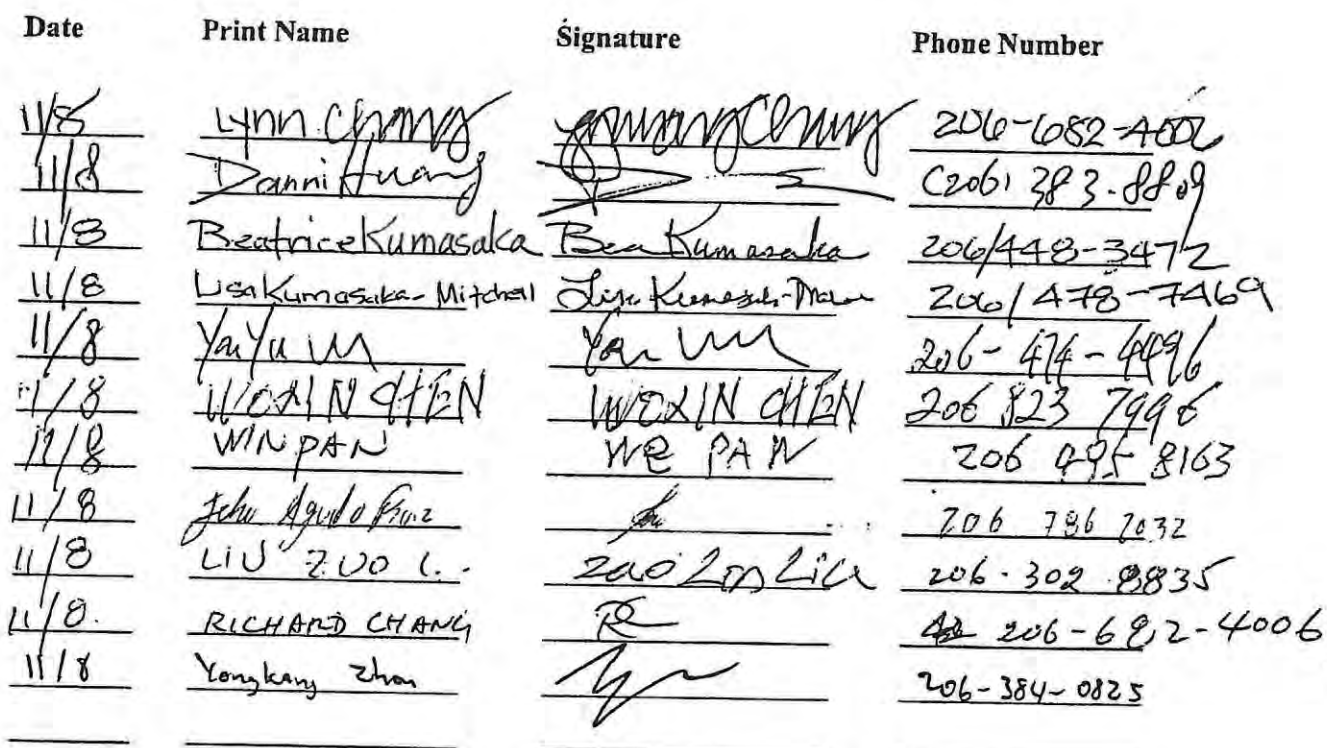 Date Print Name Signature Phone Number
11/8 Lynn Chang 206-682-4006
11/8 Danni Huang (206) 383-8809
11/8 Beatrice Kumasaka Bea Kumasaka 206/448-3472
11/8 Lisa Kumasaka-Mitchell Lisa 206/478-7469
11/8 Yan Yu 206-474-4496
11/8 WOXIN CHEN WOXIN CHEN 206 823 7996
11/8 WIN PAN WE PAN 206 8163
11/8 206
11/8 LIU ZUO L. 206-302-8835
11/8. RICHARD CHANG RC 206-682-4006
11/8 Yongkang Zhou 206-384-0825